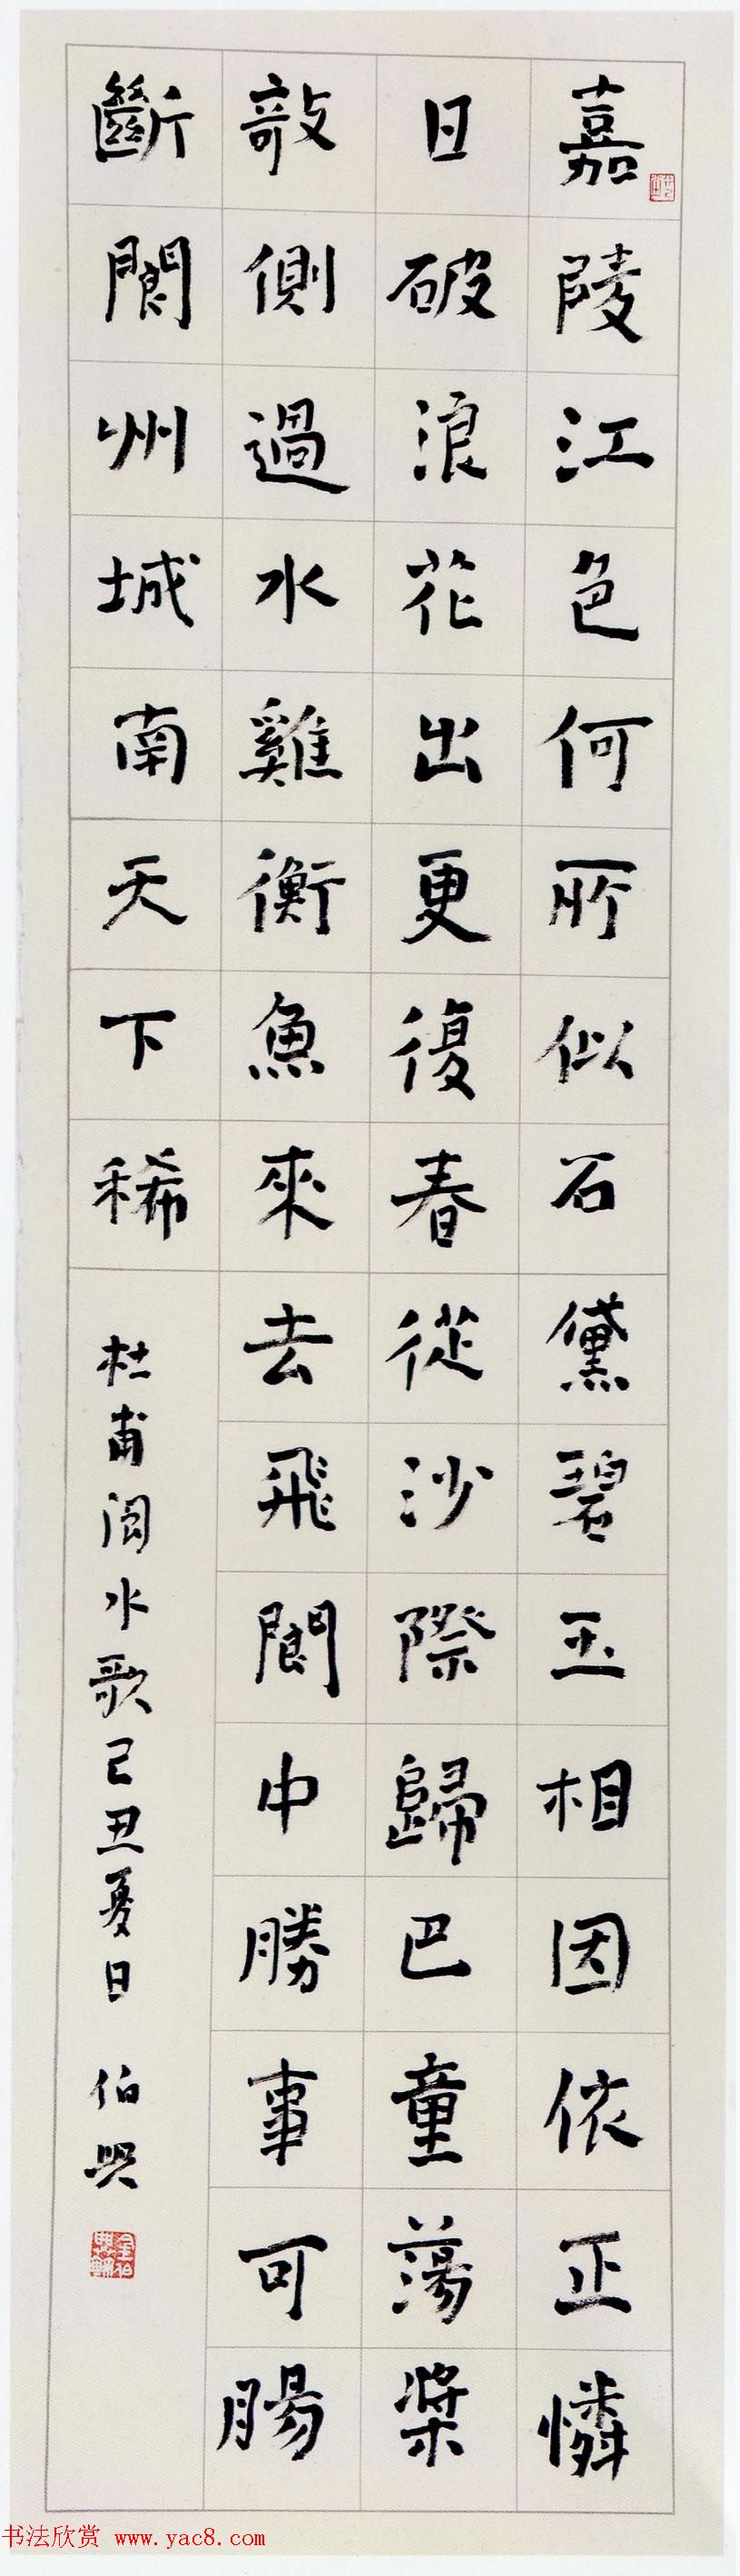 嘉陵江色何所似石黛碧玉相因依正憐
日破浪花出更復春從沙際歸巴童蕩槳
敧側過水雞銜魚來去飛閬中勝事可腸
斷閬州城南天下稀
杜甫阆水歌己丑夏日 伯興
书法欣赏 www.yac8.com